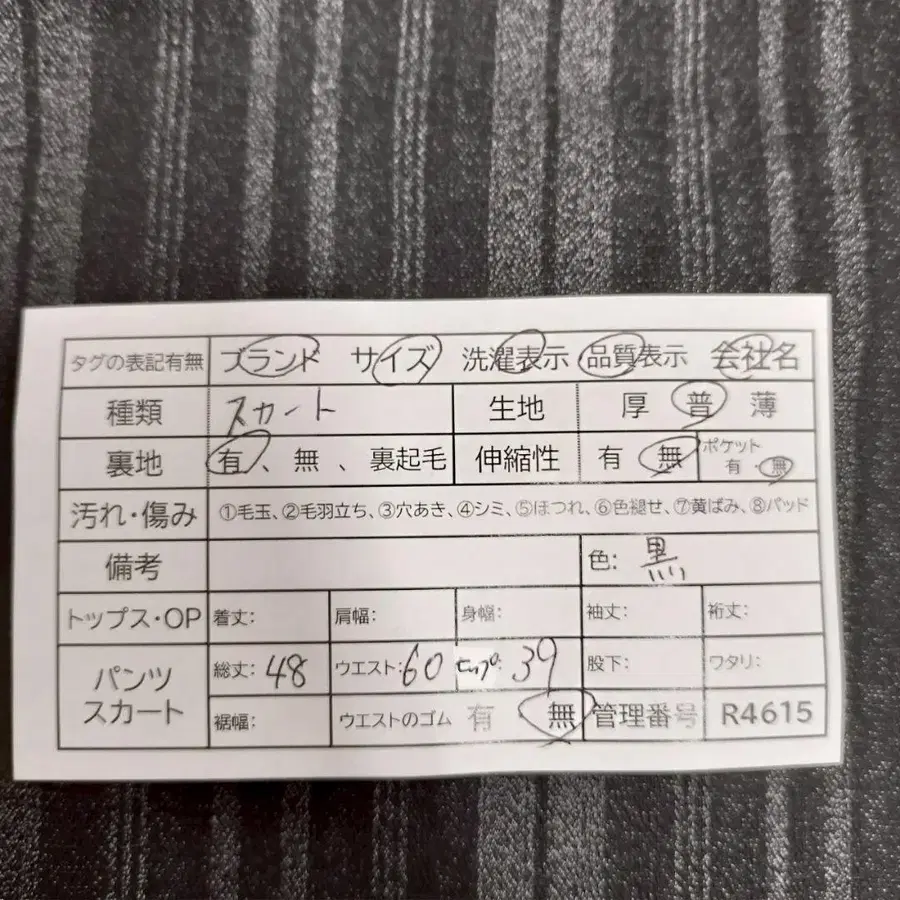 タグの表記有無 ブランド サイズ 洗濯表示 品質表示 会社名
種類 スカート 生地 厚 普 薄
裏地 有、無、裏起毛 伸縮性 有 無 ポケット 有・無
汚れ・傷み ①毛玉、②毛羽立ち、③穴あき、④シミ、⑤ほつれ、⑥色褪せ、⑦黄ばみ、⑧パッド
備考 色: 黒
トップス・OP 着丈: 肩幅: 身幅: 袖丈: 裄丈:
パンツ スカート 総丈: 48 ウエスト: 60 ヒップ: 39 股下: ワタリ:
裾幅: ウエストのゴム 有 無 管理番号 R4615